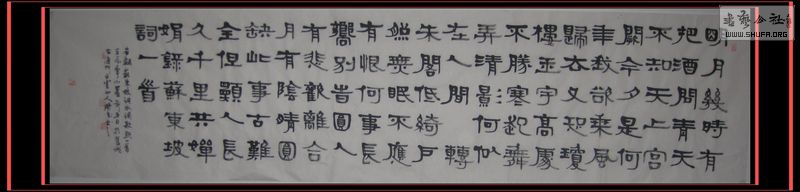 明月幾時有
把酒問青天
不知天上宮
闕今夕是何
年我欲乘風
歸去又恐瓊
樓玉宇高處
不勝寒起舞
弄清影何似
在人間轉
朱閣低綺戶
照無眠不應
有恨何事長
嚮別旹圓人
有悲歡離合
月有陰晴圓
缺此事古難
全但願人長
久千里共嬋
娟錄蘇東坡
詞一首
WWW.SHUFA.ORG